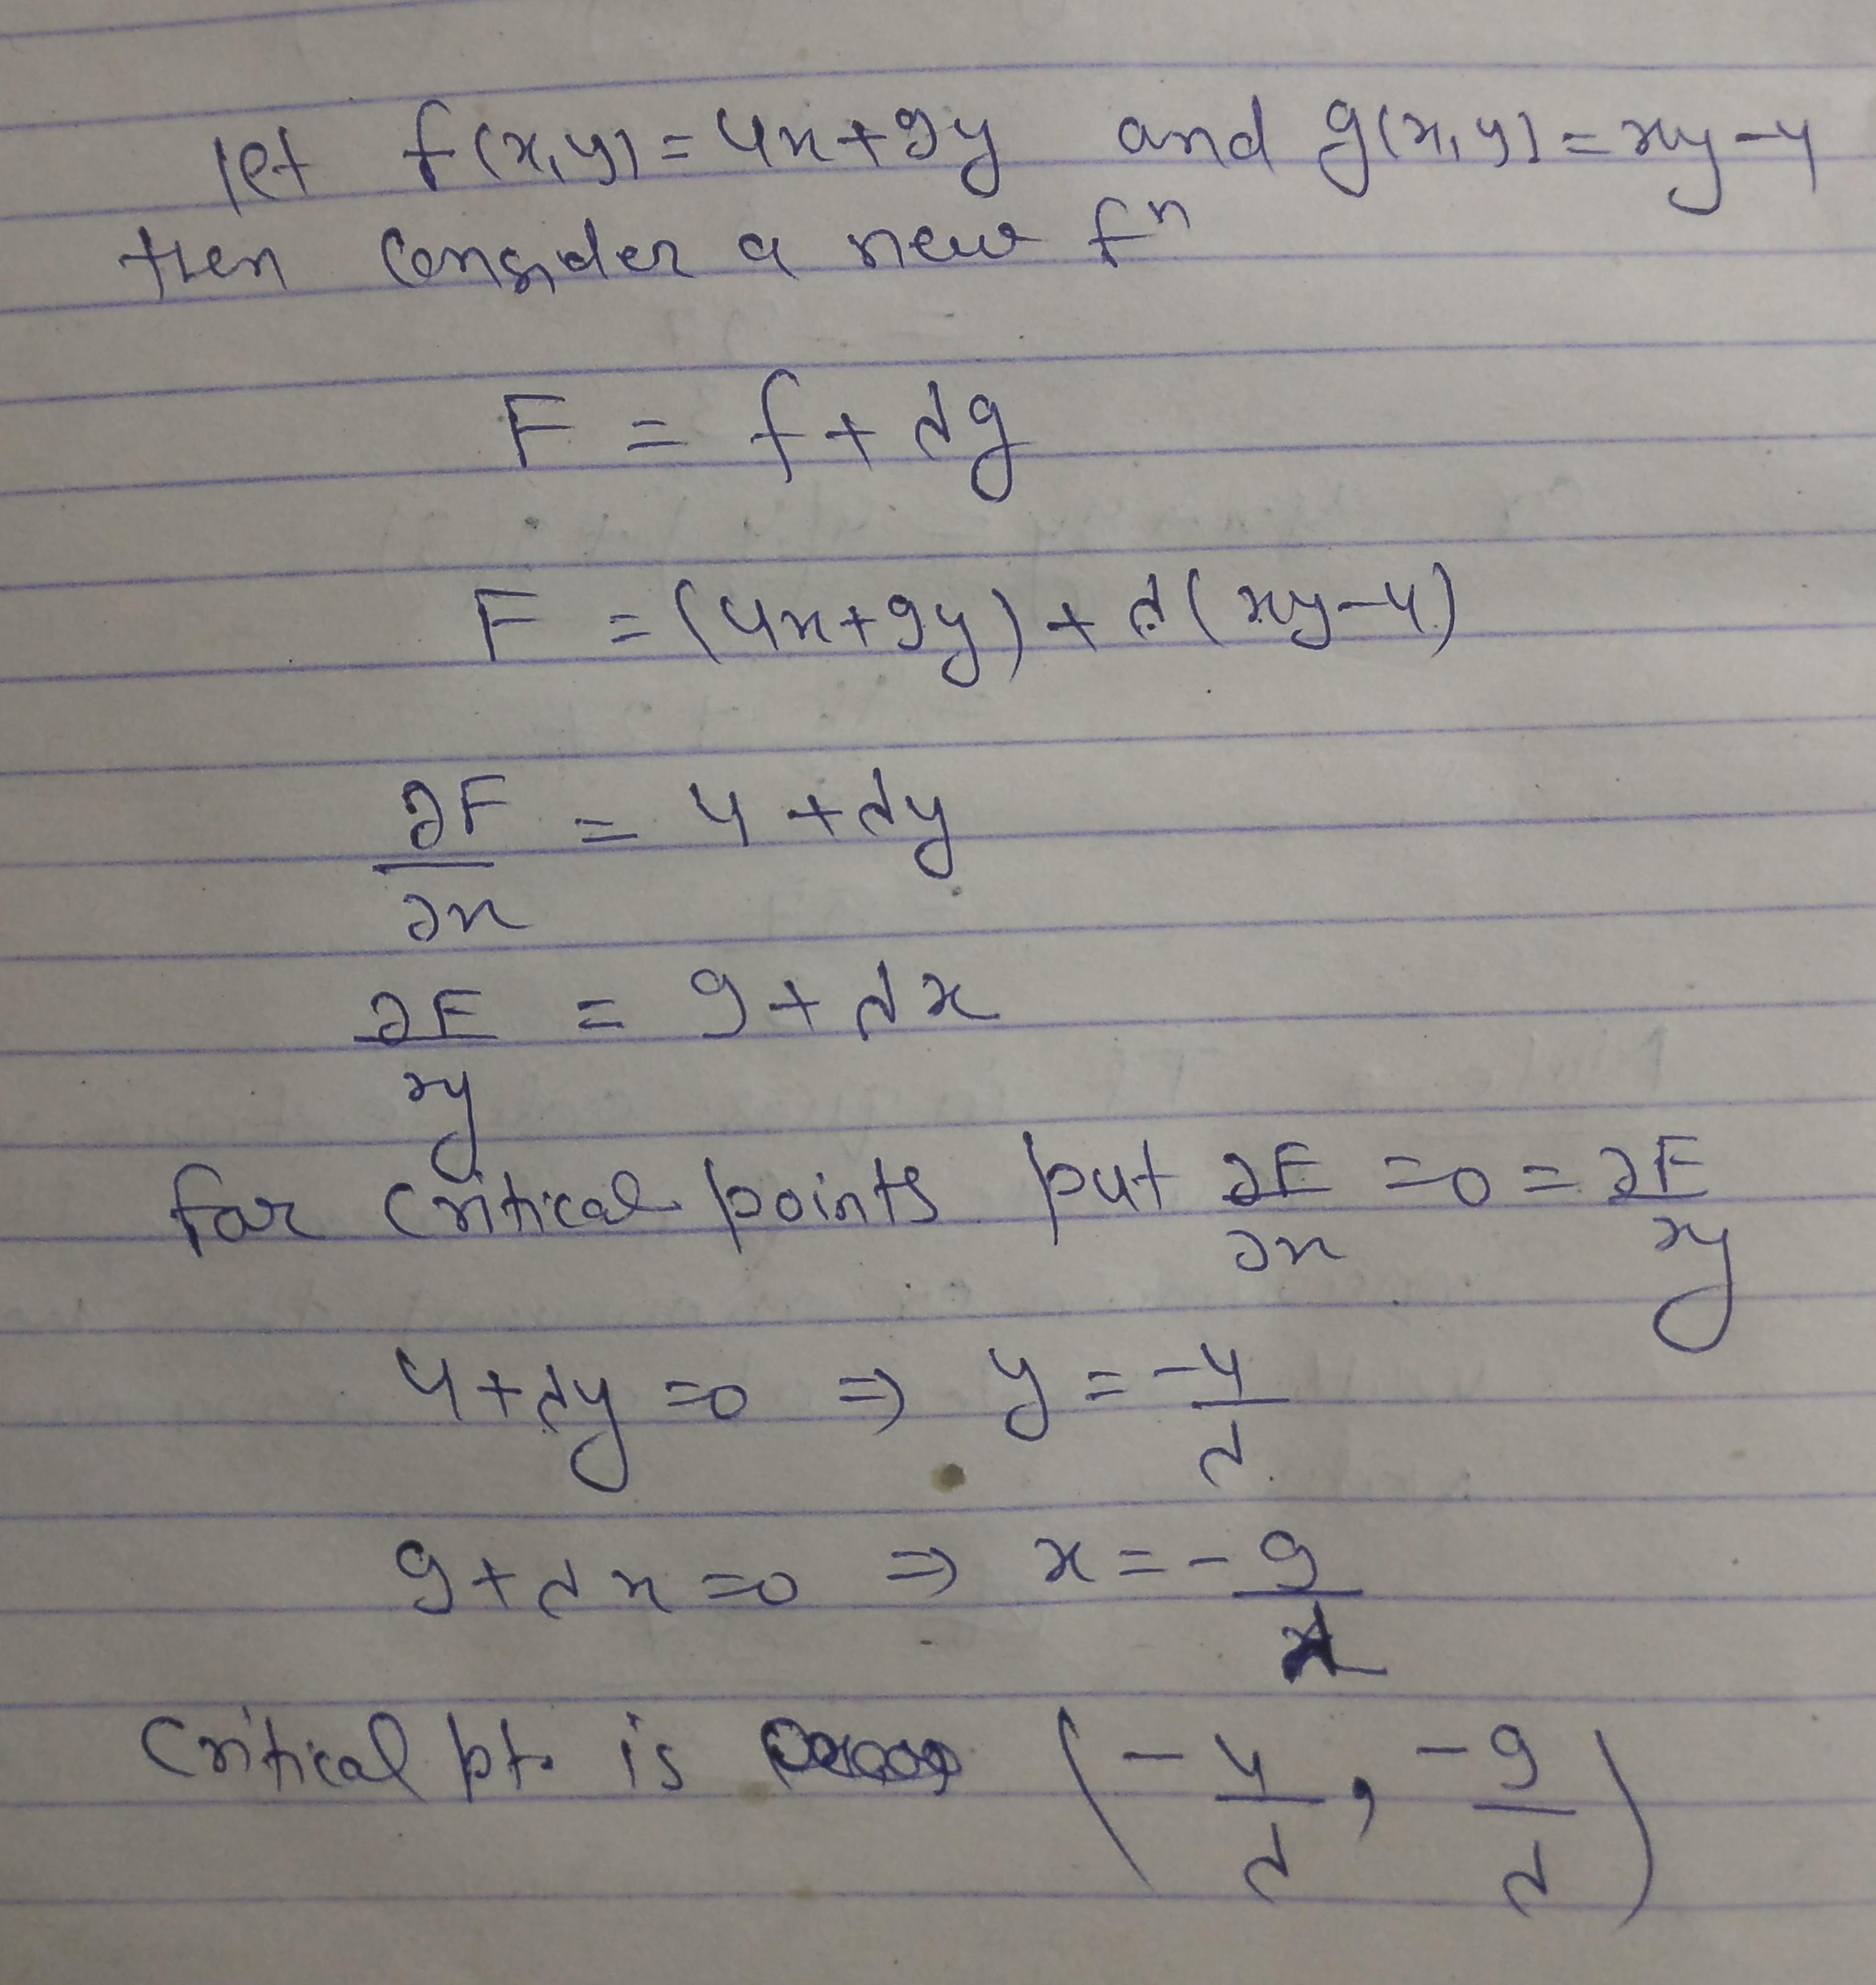 let f(x,y) = 4x+9y and g(x,y) = xy-4
then consider a new fⁿ
F = f+λg
F = (4x+9y) + λ(xy-4)
∂F/∂x = 4+λy
∂F/∂y = 9+λx
for critical points put ∂F/∂x =0= ∂F/∂y
4+λy=0 ⇒ y = -4/λ
9+λx=0 ⇒ x = -9/λ
Critical pt. is (-4/λ, -9/λ)